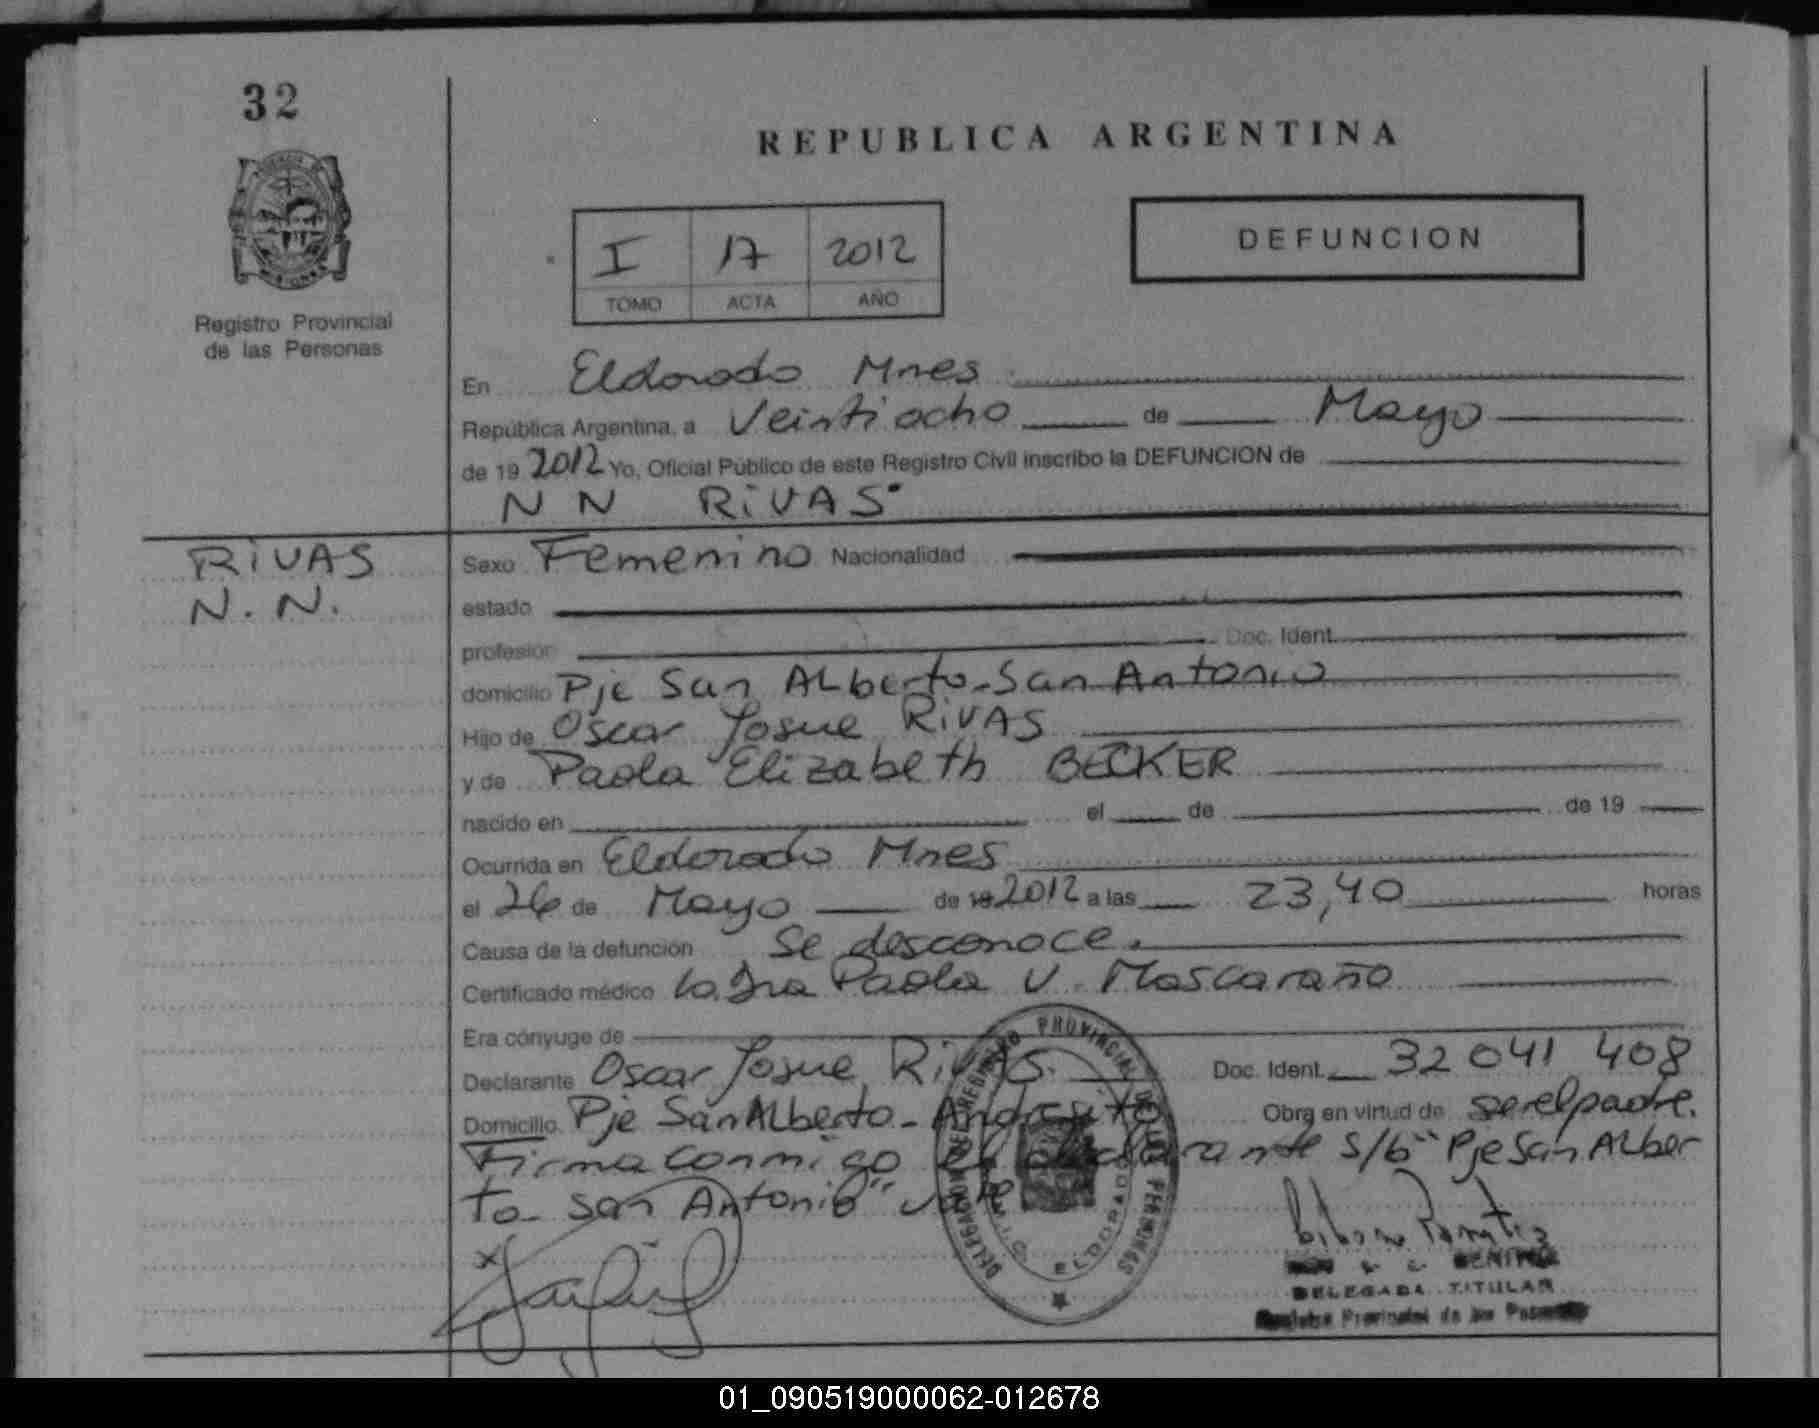 32
REPUBLICA ARGENTINA
I 17 2012
TOMO ACTA AÑO
DEFUNCION
Registro Provincial
de las Personas
En Eldorado Mnes
República Argentina, a Veintiocho de Mayo
de 19 2012 Yo, Oficial Público de este Registro Civil inscribo la DEFUNCION de
N N RIVAS
RIVAS
N. N.
Sexo Femenino Nacionalidad
estado
profesión Doc. Ident.
domicilio Pje San Alberto-San Antonio
Hijo de Oscar Josue RIVAS
y de Paola Elizabeth BECKER
nacido en el de de 19
Ocurrida en Eldorado Mnes
el 26 de Mayo de 19 2012 a las 23,40 horas
Causa de la defunción Se desconoce.
Certificado médico la Dra Paola V. Mascaraño
Era cónyuge de
Declarante Oscar Josue Rivas. Doc. Ident. 32 041 408
Domicilio Pje San Alberto - Andresito Obra en virtud de ser el padre.
Firma conmigo el declarante S/b "Pje San Alber
to - San Antonio" Vale
x
DELEGACION DEL REGISTRO PROVINCIAL DE LAS PERSONAS
ELDORADO
DELEGADA TITULAR
Registro Provincial de las Personas
01_090519000062-012678